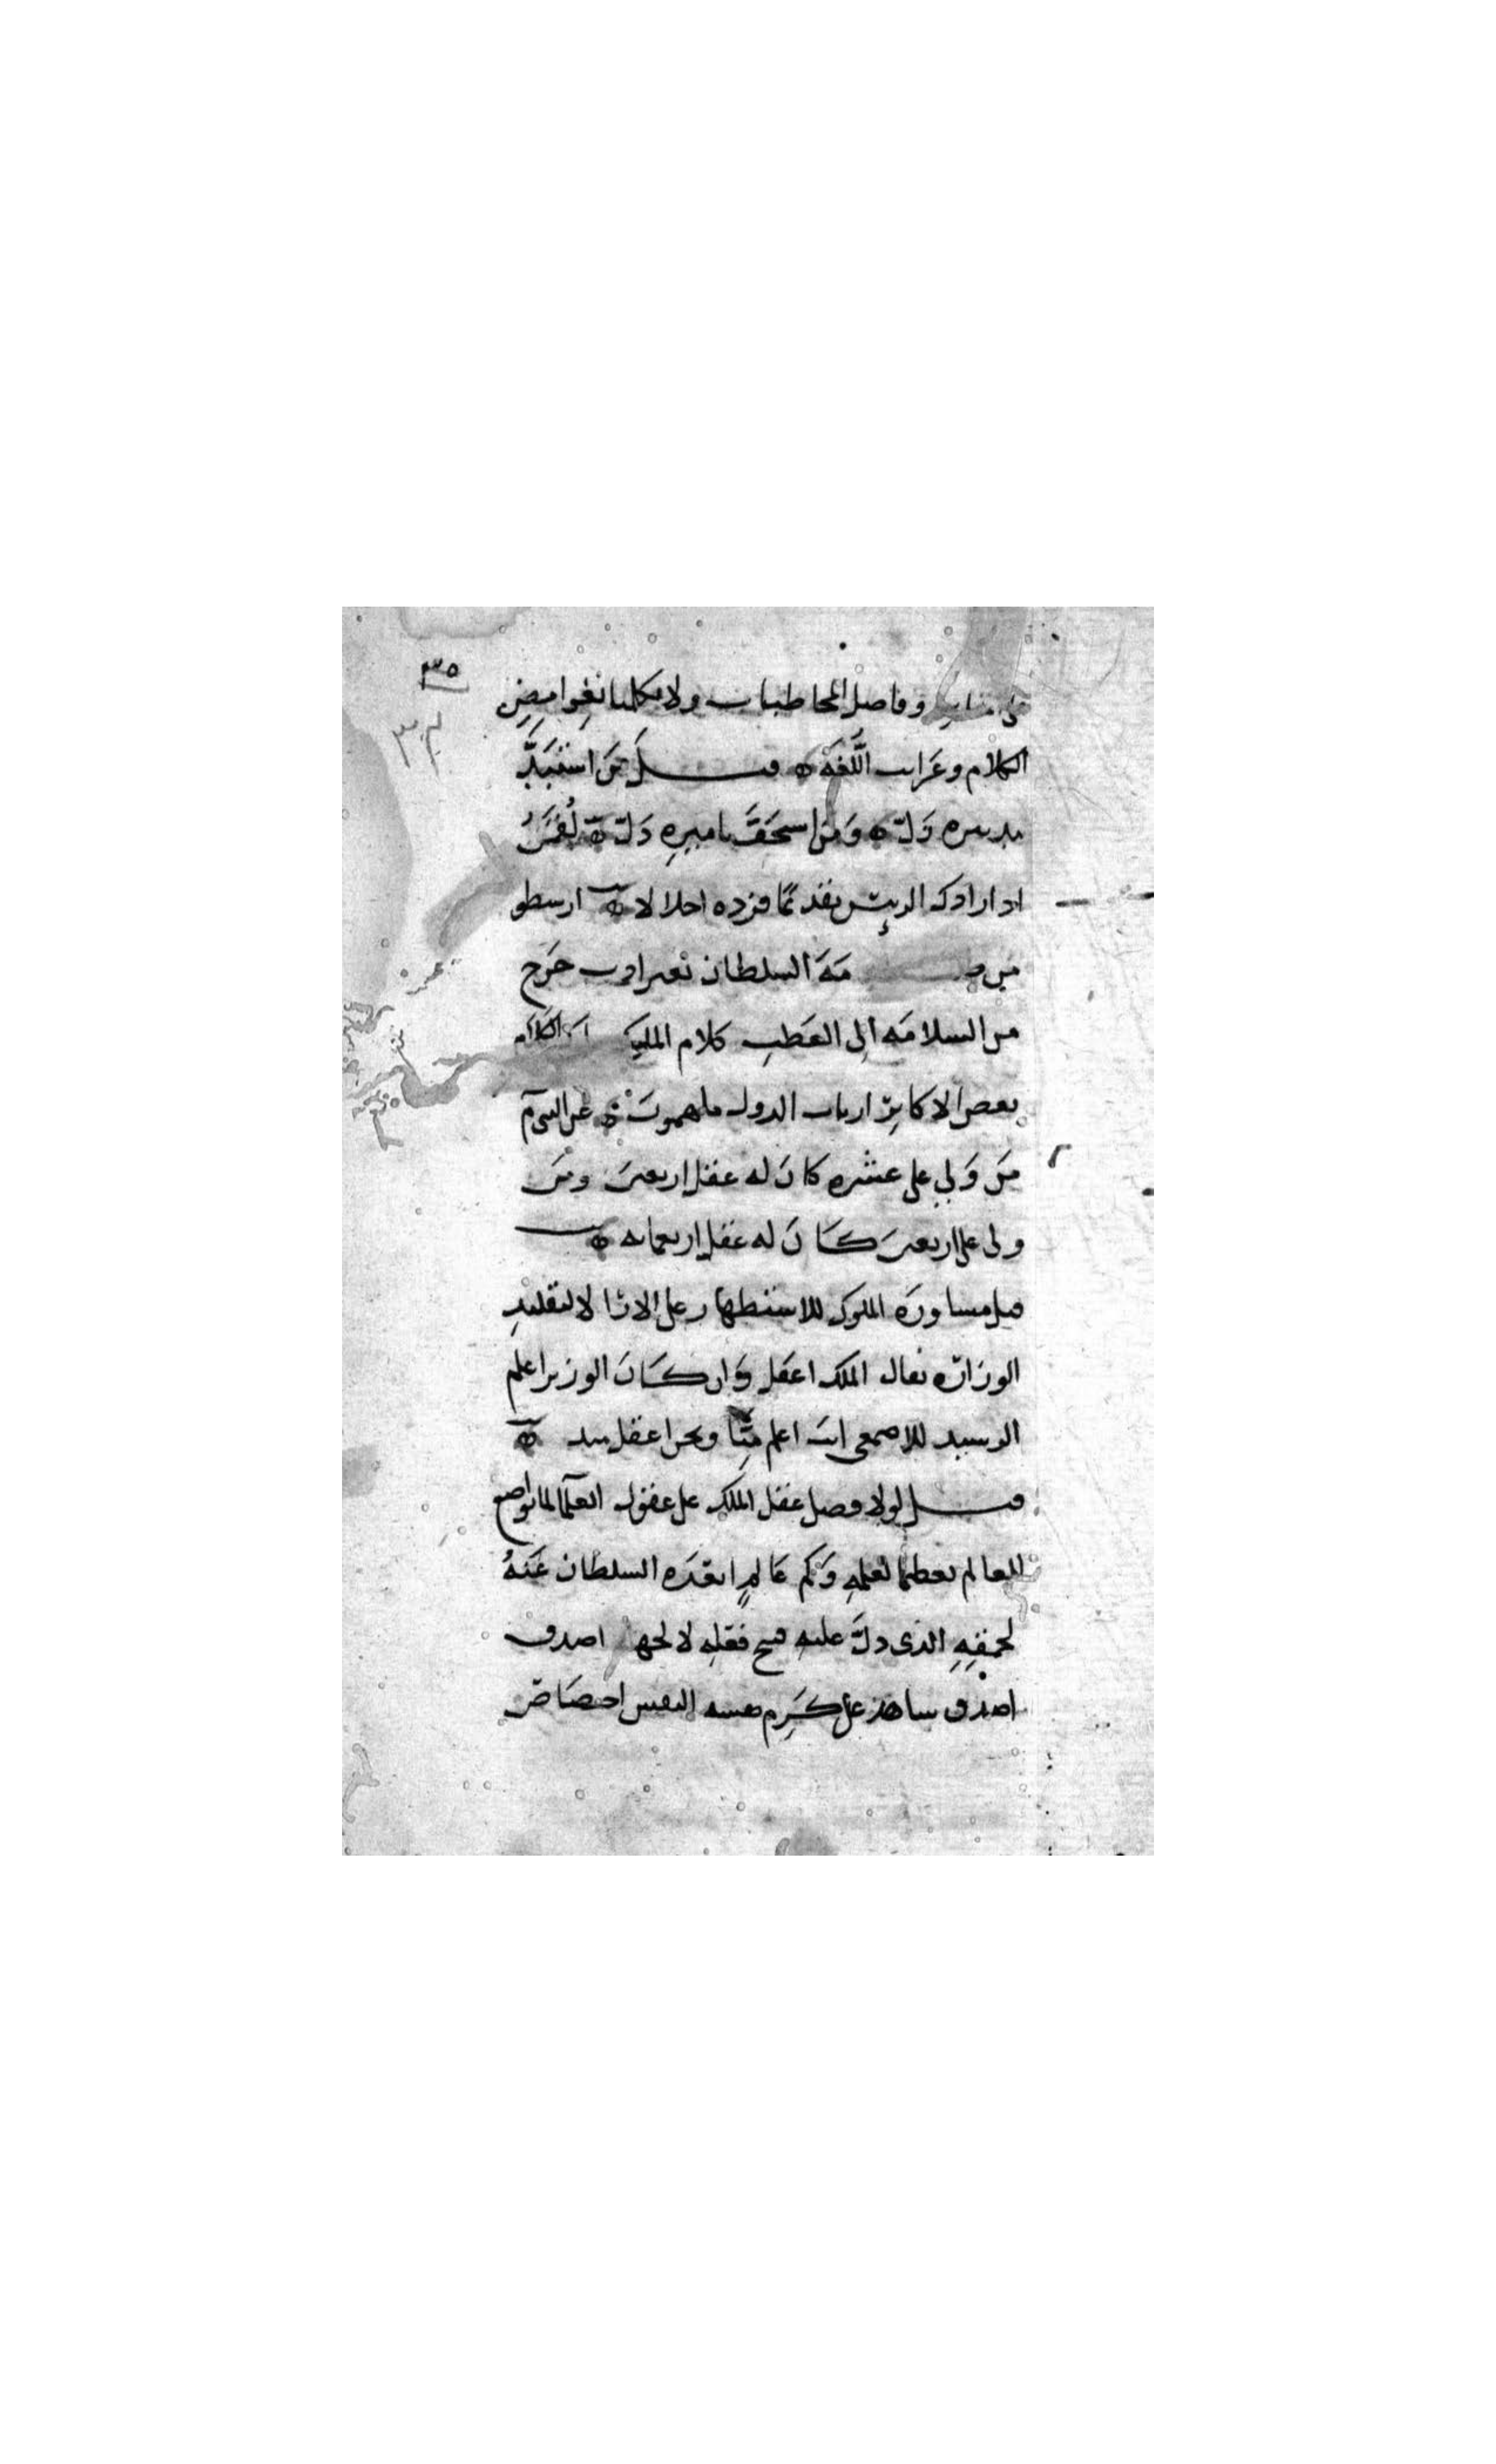 ٣٥
وفاصل المخاطبات ولا تكلمنا بغوامض
الكلام وغرائب اللغة ه قيل من استبد
بتدبيره زل ه ومن استخف باميره ذل ه لقمن
اذا زادك الرئيس تقدما فزده اجلالا ه ارسطو
من السلطان بغير ادب خرج
من السلامه الى العطب كلام الملك الكلام
بعض الاكابر ارباب الدول ملهمون ه عن
من ولي على عشره كان له عقل اربعين ومن
ولى على اربعين كان له عقل اربعمائه ه
قيل مشاورة الملوك للاستظهار على الارا لا لتقليد
الوزاره يقال الملك اعقل وان كان الوزير اعلم
الرشيد للاصمعي انت اعلم منا ونحن اعقل منك ه
قيل لولا فضل عقل الملك على عقول العلما لما تواضع
للعالم تعظيما لعلمه وكم عالم ابعده السلطان عنه
لحمقه الذى دل عليه فعله لا اصدق
اصدق شاهد على كرم النفس